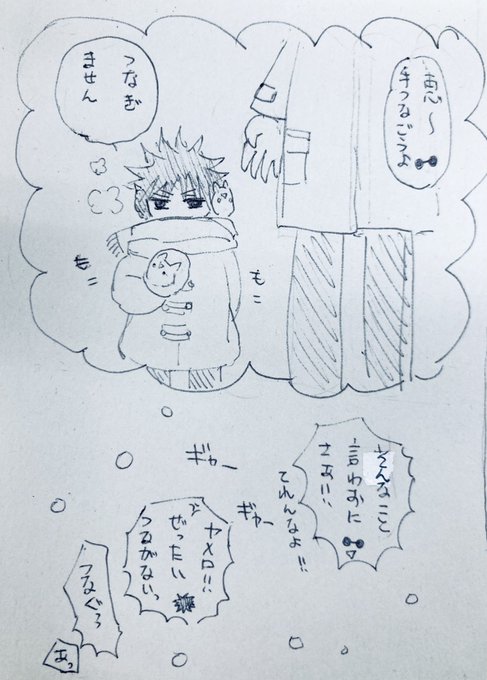 恵〜
手つなごうよ
つなぎ
ません
もこ
もこ
そんなこと
言わずに
さあいい
てれんなよ!!
ギャー
ギャー
ヤメロ!!
ぜったい
つながないっ
つなぐぅ
あっ